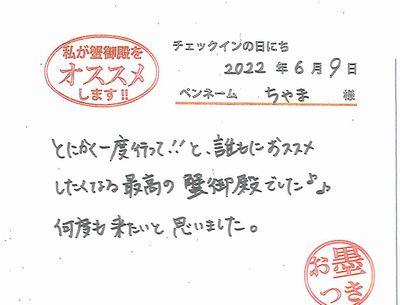 私が蟹御殿を
オススメ
します!!
チェックインの日にち
2022 年 6 月 9 日
ペンネーム ちゃま 様
とにかく一度行って!!と、誰もにおススメ
したくなる最高の蟹御殿でした♪♪
何度も来たいと思いました。
お墨
つき